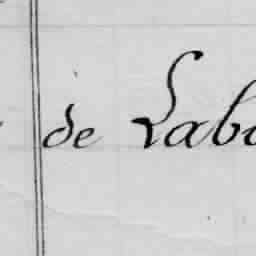 de Labo